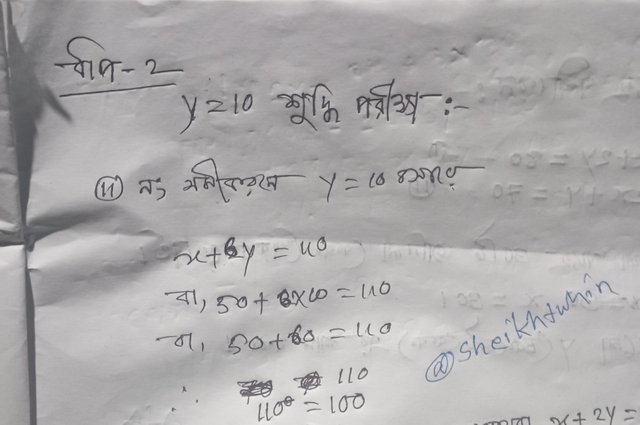 ধাপ-২
y=10 শুদ্ধি পরীক্ষা:-
(ii) নং সমীকরণে y=10 বসায়ে
x+6y=110
বা, 50+6×10=110
বা, 50+60=110
∴ 110
110 = 100
@sheikhtuhin
x+2y=